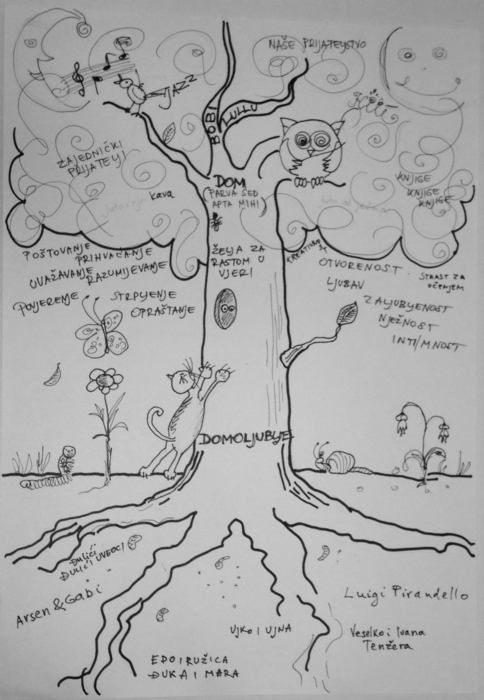 NAŠE PRIJATEYSTVO
JAZZ
BOBI
LULLU
ZAJEDNIČKI
PRIJATEYI
kava
DOM
PARVA SED
APTA MIHI
KNJIGE
KNJIGE
KNJIGE
POŠTOVANJE
PRIHVAĆANJE
UVAŽAVANJE
RAZUMIJEVANJE
POVJERENJE
STRPYENJE
OPRAŠTANJE
ŽEYA ZA
RASTOM U
VJERI
OTVORENOST
STRAST ZA
UČENJEM
LJUBAV
ZALJUBYENOST
NJEŽNOST
INTI/MNOST
DOMOLJUBYE
Arsen & Gabi
Luigi Pirandello
UJKO I UJNA
Veselko i Ivana
Tenžera
EDO I RUŽICA
ĐUKA I MARA